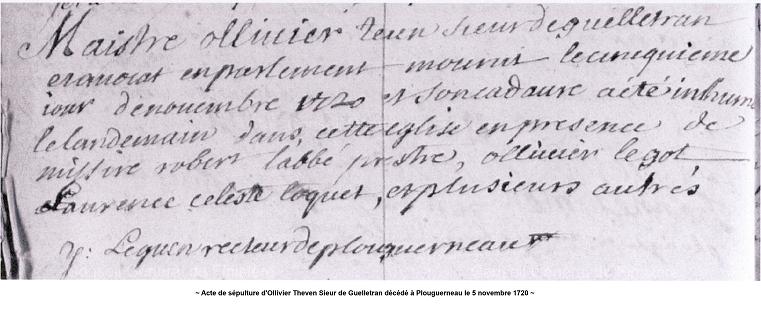 Maistre ollivier teven sieur de quelletran
et avocat en parlement mourut le cinquieme
iour de novembre 1720 et son cadavre a été inhumé
le landemain dans cette eglise en presence de
missire robert labbé prestre, ollivier le got
Laurence celeste loquet, et plusieurs autres
y: Lequen recteur de plouguerneau
Conseil Général du Finistère
~ Acte de sépulture d'Ollivier Theven Sieur de Guelletran décédé à Plouguerneau le 5 novembre 1720 ~